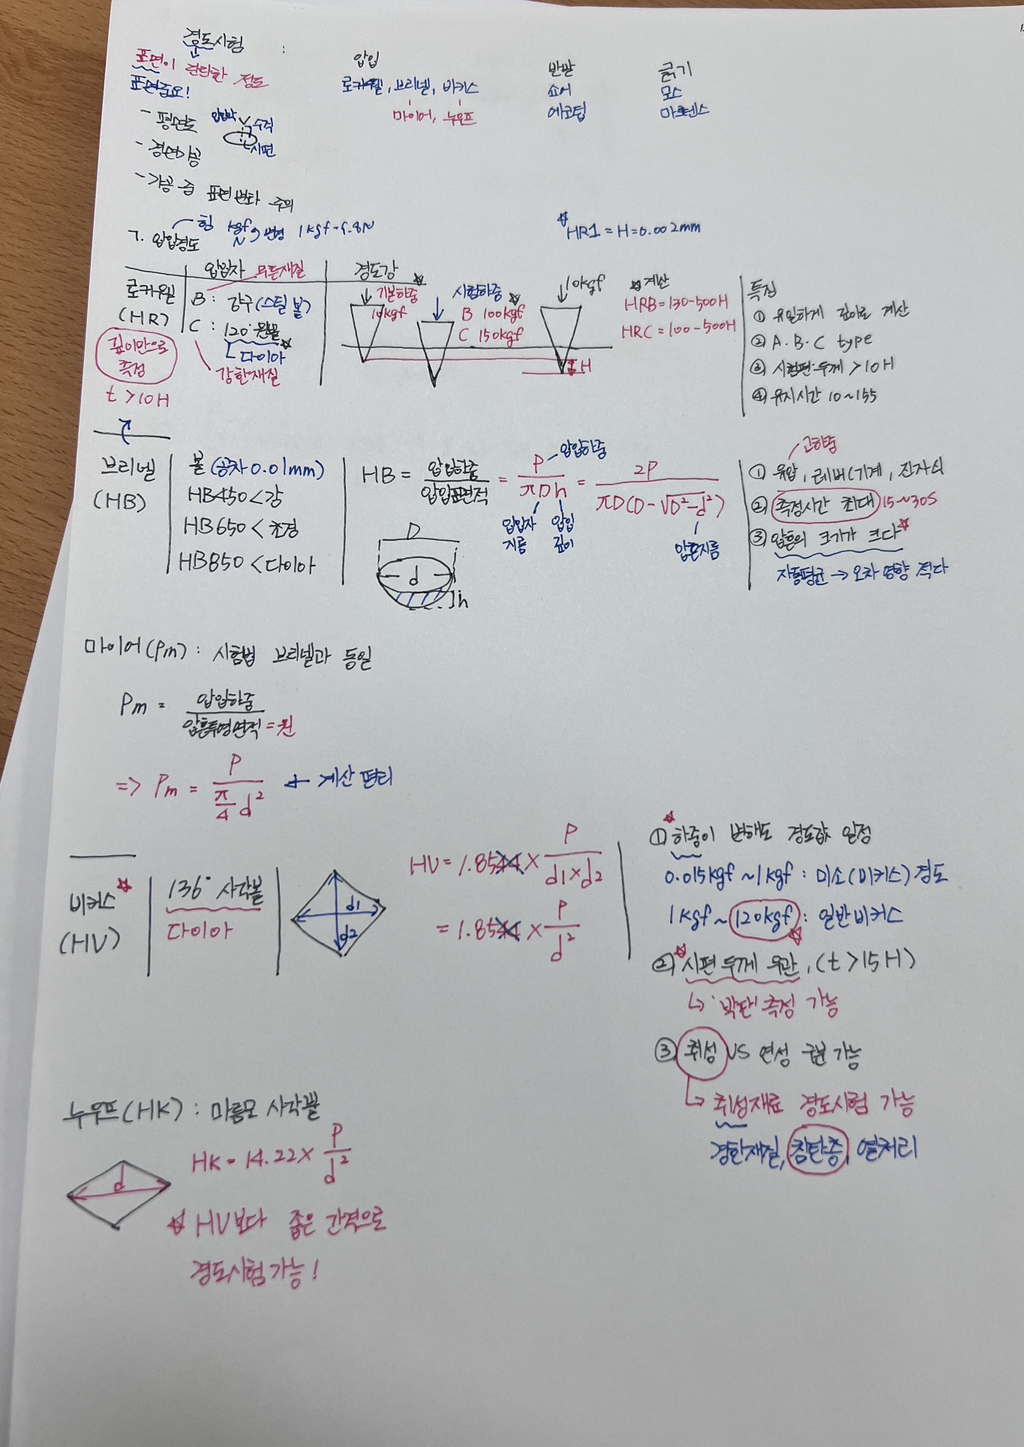 경도시험 :
표면이 단단한 정도
표면중요!
- 평면도
압입자
수직
시편
- 경면가공
- 가공 중 표면 변화 주의
압입
로크웰, 브리넬, 비커스
마이어, 누우프
반발
쇼어
에코팁
긁기
모스
마르텐스
7. 압입경도
힘 kgf N 변경 1kgf=9.8N
☆HR1 = H=0.002mm
압입자
무른재질
경도값
로크웰
(HR)
깊이만으로
측정
t > 10H
B : 강구(스틸 볼)
C : 120° 원뿔
다이아
강한재질
기본하중
10kgf
시험하중
B 100kgf
C 150kgf
10kgf
H
☆계산
HRB=130-500H
HRC=100-500H
특징
① 유일하게 깊이로 계산
② A·B·C type
③ 시험편 두께 > 10H
④ 유지시간 10~15s
브리넬
(HB)
볼 (공차 0.01mm)
HB450<강
HB650<초경
HB850<다이아
HB = 압입하중 / 압입표면적 = P / πDh = 2P / πD(D-√D²-d²)
압입하중
압입자
지름
압입
깊이
압흔지름
D
d
h
고하중
① 유압, 레버(기계, 전자식
② 측정시간 최대 15~30s
③ 압흔의 크기가 크다☆
자동평균 → 오차 영향 적다
마이어(Pm) : 시험법 브리넬과 동일
Pm = 압입하중 / 압흔투영면적 = 원
=> Pm = P / π/4 d² ← 계산 편리
비커스☆
(HV)
136° 사각뿔
다이아
d1
d2
HV=1.8544 × P / d1×d2
= 1.8544 × P / d²
① 하중이 변해도 경도값 일정
0.015kgf ~1kgf : 미소(비커스)경도
1kgf~120kgf : 일반비커스
② 시편 두께 무관, (t>15H)
↳ '박판' 측정 가능
③ 취성 VS 연성 구분 가능
↳ 취성재료 경도시험 가능
경한재질, 침탄층, 열처리
누우프(HK) : 마름모 사각뿔
d
HK=14.22× P / d²
☆ HV보다 좁은 간격으로
경도시험가능!